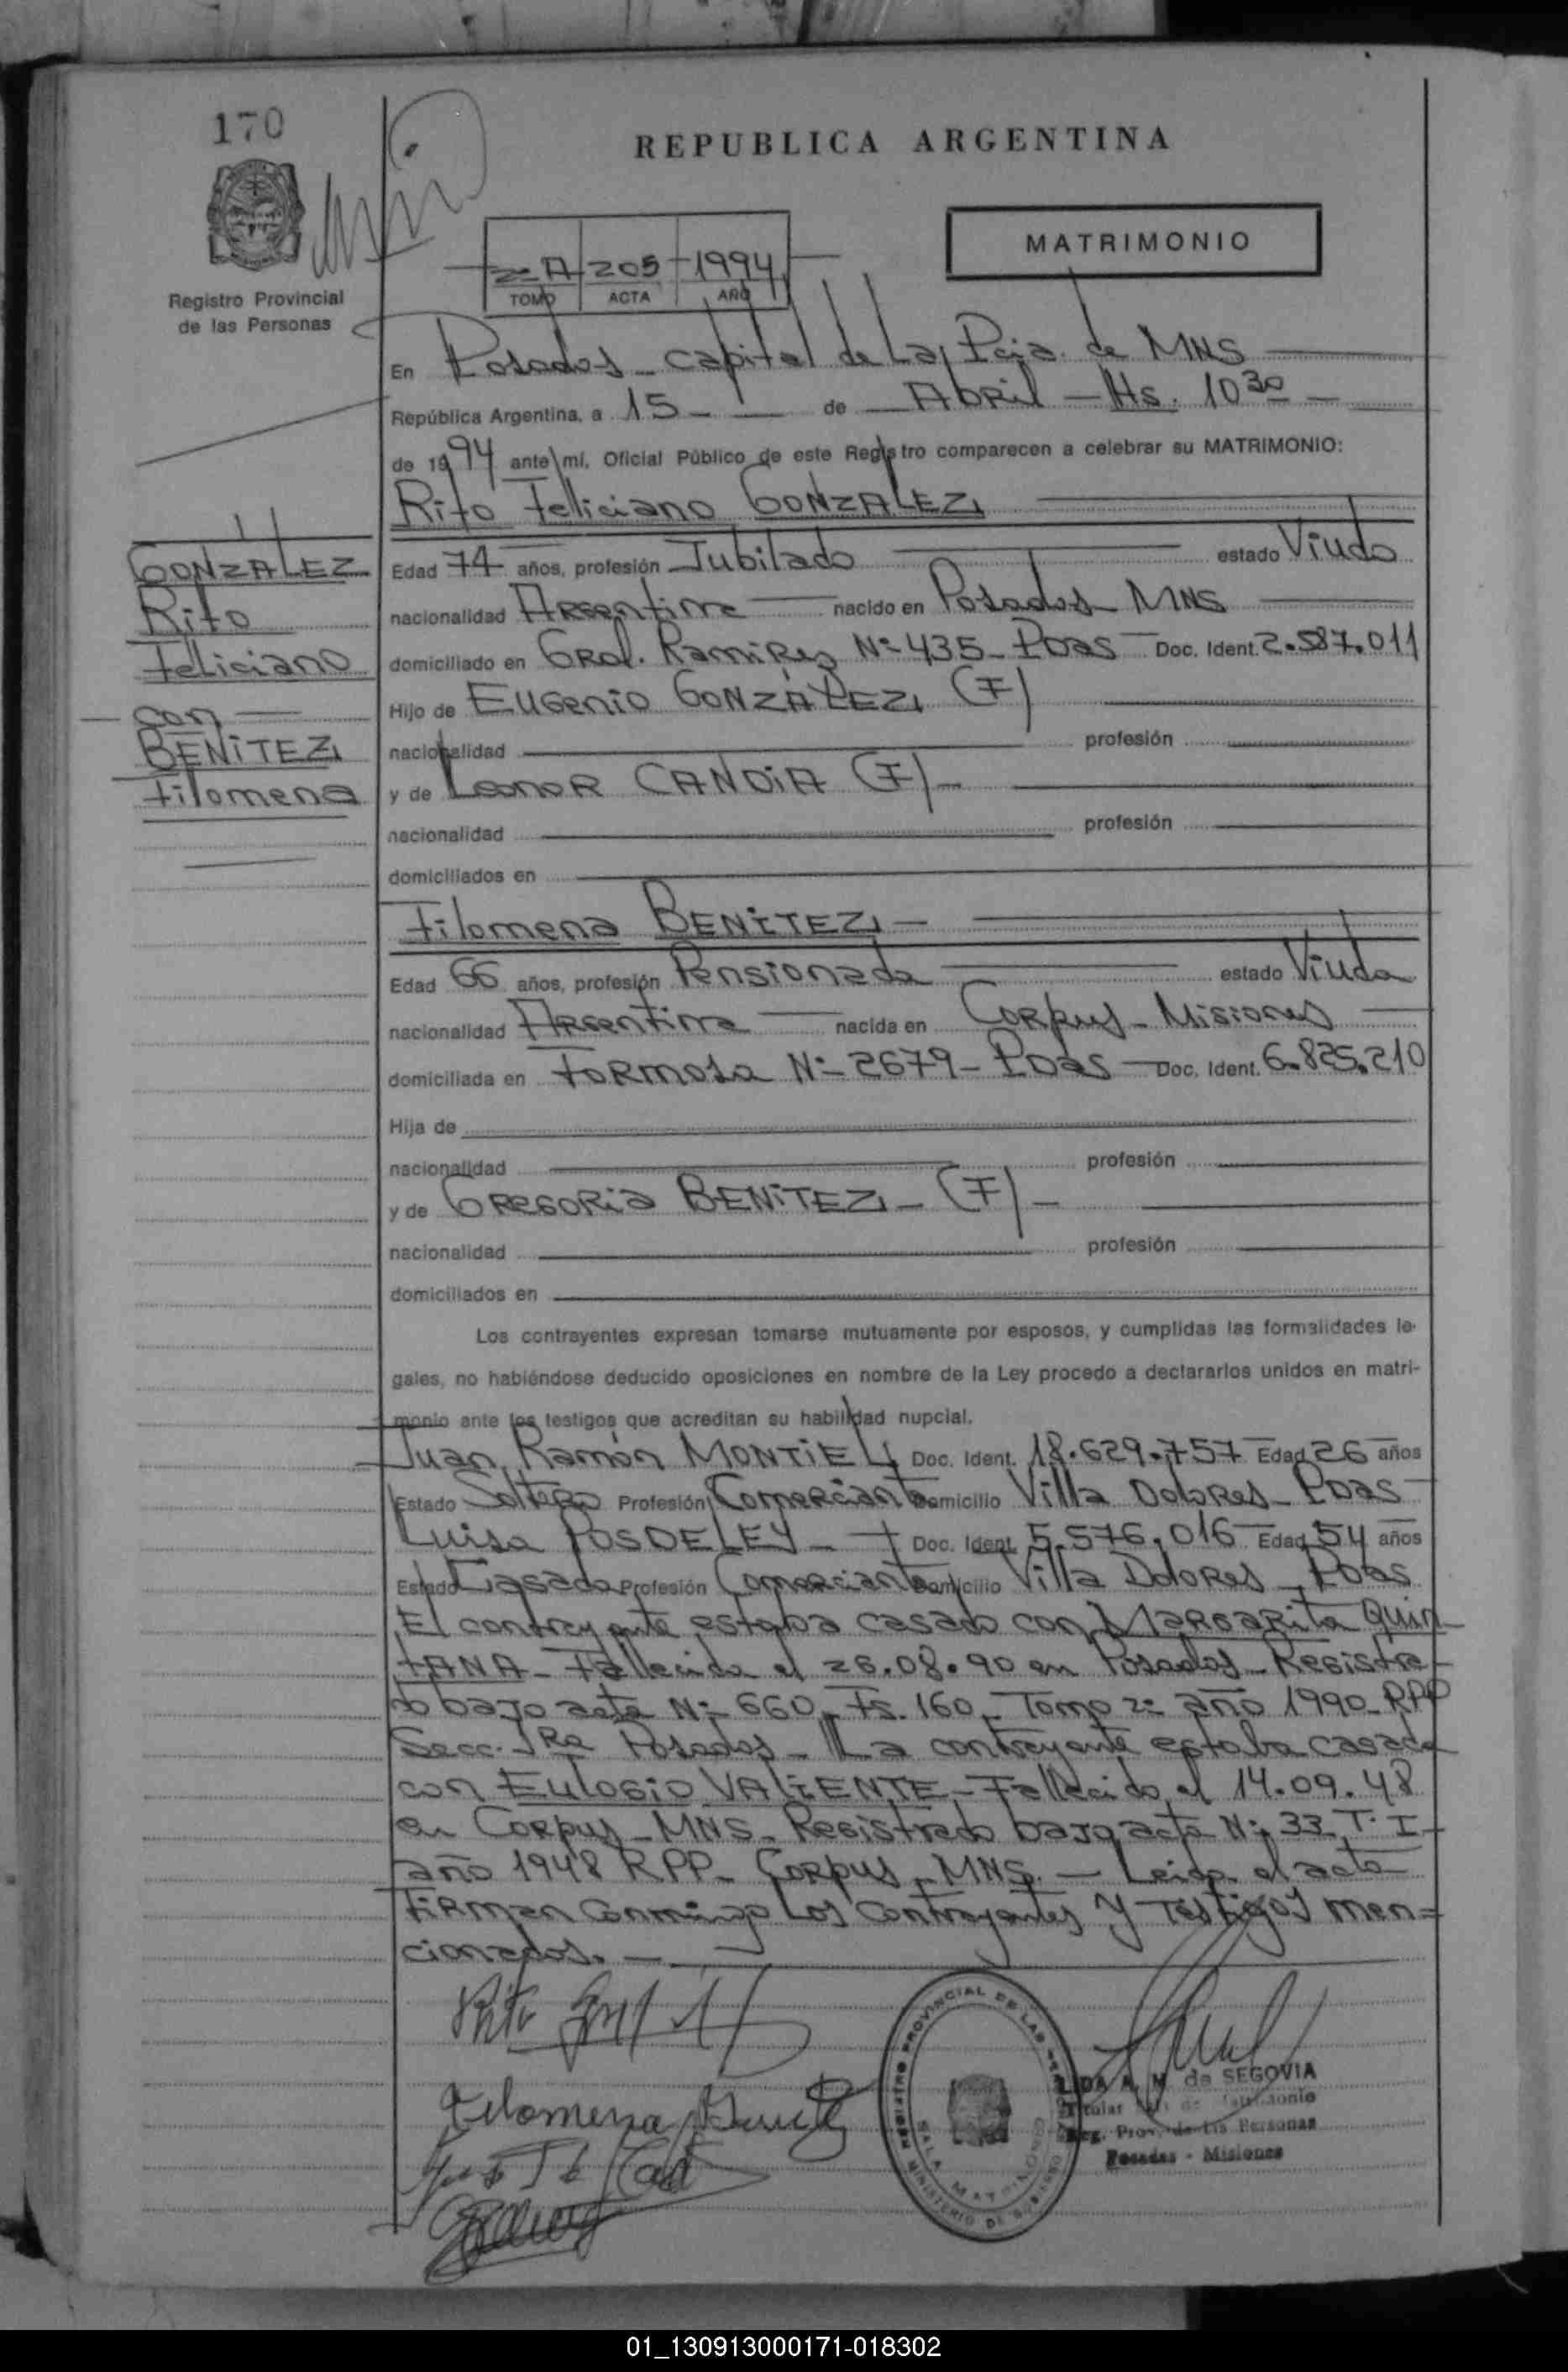 170
REPUBLICA ARGENTINA
MATRIMONIO
2º A 205 1994
TOMO ACTA AÑO
Registro Provincial
de las Personas
En Posadas - Capital de La Pcia. de MNS
República Argentina, a 15 - de Abril - Hs. 10 30 -
de 1994 ante mí, Oficial Público de este Registro comparecen a celebrar su MATRIMONIO:
Rito Feliciano GONZALEZ
GONZALEZ
Rito
Feliciano
con
BENITEZ
Filomena
Edad 74 años, profesión Jubilado estado Viudo
nacionalidad Argentina nacido en Posadas - MNS
domiciliado en Gral. Ramirez Nº 435 - Pdas - Doc. Ident. 2.587.011
Hijo de Eugenio GONZALEZ (F)
nacionalidad profesión
y de Leonor CANDIA (F) -
nacionalidad profesión
domiciliados en
Filomena BENITEZ -
Edad 66 años, profesión Pensionada estado Viuda
nacionalidad Argentina nacida en Corpus - Misiones
domiciliada en Formosa Nº 2679 - Pdas - Doc. Ident. 6.825.210
Hija de
nacionalidad profesión
y de Gregoria BENITEZ - (F) -
nacionalidad profesión
domiciliados en
Los contrayentes expresan tomarse mutuamente por esposos, y cumplidas las formalidades le-
gales, no habiéndose deducido oposiciones en nombre de la Ley procedo a declararlos unidos en matri-
monio ante los testigos que acreditan su habilidad nupcial.
Juan Ramón MONTIEL Doc. Ident. 18.629.757 Edad 26 años
Estado Soltero Profesión Comerciante Domicilio Villa Dolores - Pdas -
Luisa POSDELEY - Doc. Ident. 5.576.016 Edad 54 años
Estado Casada Profesión Comerciante Domicilio Villa Dolores - Pdas
El contrayente estaba casado con Margarita Quin-
tANA - Fallecida el 26.08.90 en Posadas - Registra-
do bajo acta Nº 660 - Fs. 160 - Tomo 2º año 1990 - RPP
Secc. 1Ra Posadas - La contrayente estaba casada
con Eulogio VALIENTE - Fallecido el 14.09.48
en Corpus - MNS - Registrado bajo acta Nº 33 T. I -
año 1948 RPP - Corpus - MNS. - Leida el acta
Firman Conmigo Los Contrayentes y Testigos men=
cionados. -
REGISTRO PROVINCIAL DE LAS
SALA MATRIMONIO
MINISTERIO DE GOBIERNO
LIDA A. M. de SEGOVIA
Titular
Reg. Prov. de las Personas
Posadas - Misiones
Filomena
01_130913000171-018302